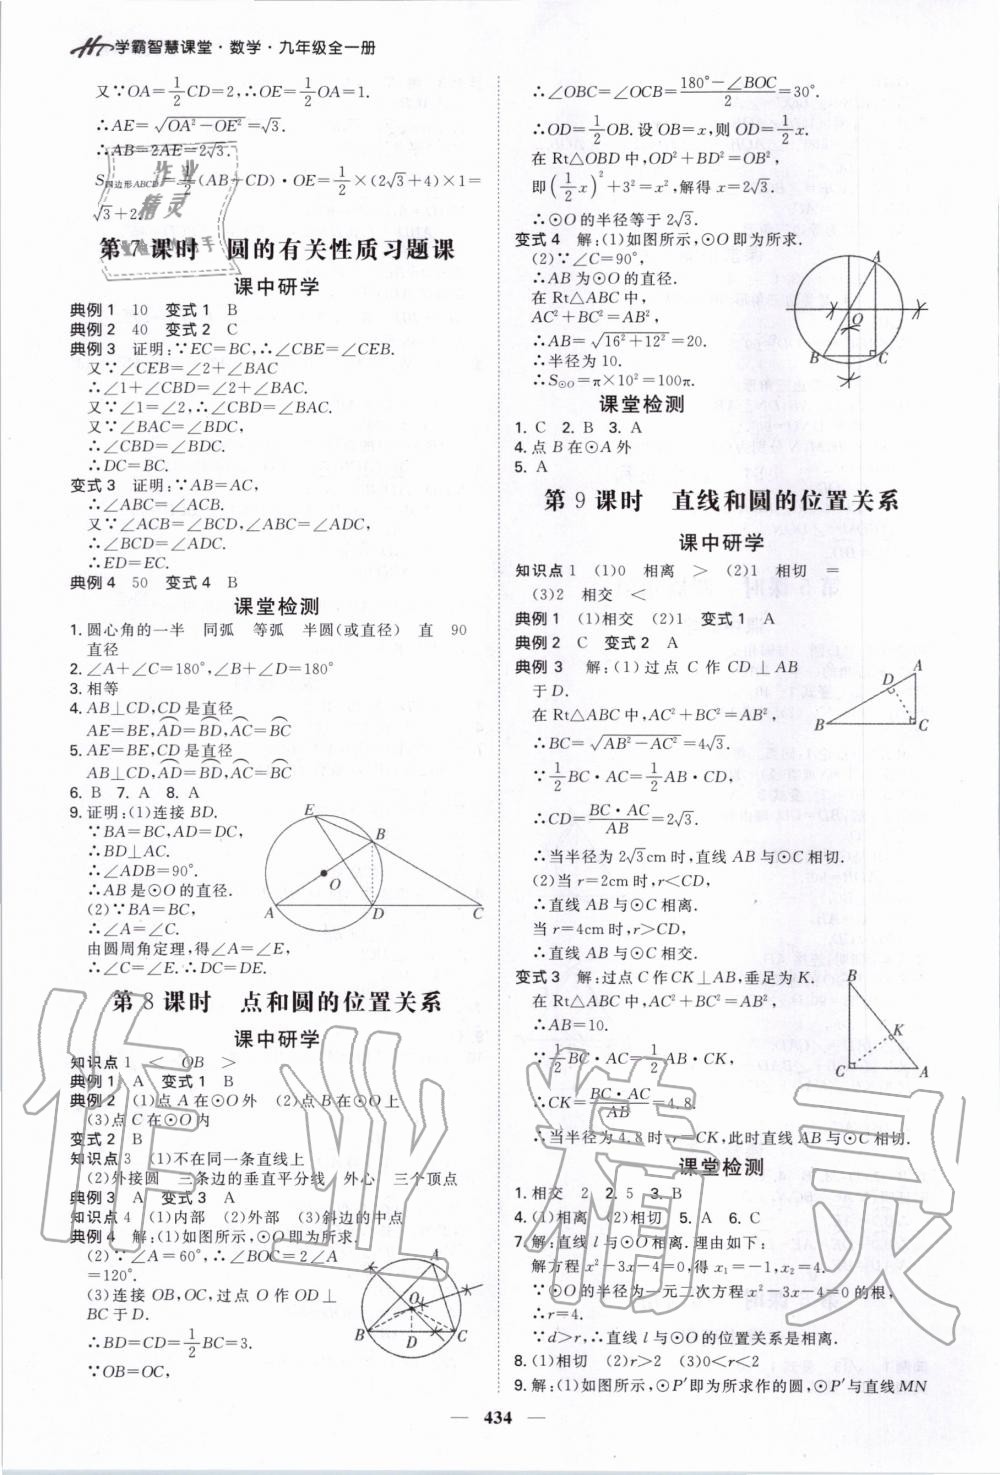 学霸智慧课堂·数学·九年级全一册
又∵OA=1/2CD=2,∴OE=1/2OA=1.
∴AE=√(OA²-OE²)=√3.
∴AB=2AE=2√3.
S四边形ABCD=1/2(AB+CD)·OE=1/2×(2√3+4)×1=
√3+2.
第7课时 圆的有关性质习题课
课中研学
典例1 10 变式1 B
典例2 40 变式2 C
典例3 证明:∵EC=BC,∴∠CBE=∠CEB.
又∵∠CEB=∠2+∠BAC
∴∠1+∠CBD=∠2+∠BAC.
又∵∠1=∠2,∴∠CBD=∠BAC.
又∵∠BAC=∠BDC,
∴∠CBD=∠BDC.
∴DC=BC.
变式3 证明:∵AB=AC,
∴∠ABC=∠ACB.
又∵∠ACB=∠BCD,∠ABC=∠ADC,
∴∠BCD=∠ADC.
∴ED=EC.
典例4 50 变式4 B
课堂检测
1.圆心角的一半 同弧 等弧 半圆(或直径) 直 90
直径
2.∠A+∠C=180°,∠B+∠D=180°
3.相等
4.AB⊥CD,CD是直径
AE=BE,⌒AD=⌒BD,⌒AC=⌒BC
5.AE=BE,CD是直径
AB⊥CD,⌒AD=⌒BD,⌒AC=⌒BC
6.B 7.A 8.A
9.证明:(1)连接BD.
∵BA=BC,AD=DC,
∴BD⊥AC.
∴∠ADB=90°.
∴AB是⊙O的直径.
(2)∵BA=BC,
∴∠A=∠C.
由圆周角定理,得∠A=∠E,
∴∠C=∠E.∴DC=DE.
E
B
O
A
D
C
第8课时 点和圆的位置关系
课中研学
知识点1 < OB >
典例1 A 变式1 B
典例2 (1)点A在⊙O外 (2)点B在⊙O上
(3)点C在⊙O内
变式2 B
知识点3 (1)不在同一条直线上
(2)外接圆 三条边的垂直平分线 外心 三个顶点
典例3 A 变式3 A
知识点4 (1)内部 (2)外部 (3)斜边的中点
典例4 解:(1)如图所示,⊙O即为所求.
(2)∵∠A=60°,∴∠BOC=2∠A
=120°.
(3)连接OB,OC,过点O作OD⊥
BC于D.
∴BD=CD=1/2BC=3.
∵OB=OC,
A
O
B
D
C
∴∠OBC=∠OCB=(180°-∠BOC)/2=30°.
∴OD=1/2OB.设OB=x,则OD=1/2x.
在Rt△OBD中,OD²+BD²=OB²,
即(1/2x)²+3²=x²,解得x=2√3.
∴⊙O的半径等于2√3.
变式4 解:(1)如图所示,⊙O即为所求.
(2)∵∠C=90°,
∴AB为⊙O的直径.
在Rt△ABC中,
AC²+BC²=AB²,
∴AB=√(16²+12²)=20.
∴半径为10.
∴S⊙O=π×10²=100π.
A
O
B
C
课堂检测
1.C 2.B 3.A
4.点B在⊙A外
5.A
第9课时 直线和圆的位置关系
课中研学
知识点1 (1)0 相离 > (2)1 相切 =
(3)2 相交 <
典例1 (1)相交 (2)1 变式1 A
典例2 C 变式2 A
典例3 解:(1)过点C作CD⊥AB
于D.
在Rt△ABC中,AC²+BC²=AB²,
∴BC=√(AB²-AC²)=4√3.
∵1/2BC·AC=1/2AB·CD,
∴CD=(BC·AC)/AB=2√3.
∴当半径为2√3cm时,直线AB与⊙C相切.
(2)当r=2cm时,r<CD,
∴直线AB与⊙C相离.
当r=4cm时,r>CD,
∴直线AB与⊙C相交.
A
D
B
C
变式3 解:过点C作CK⊥AB,垂足为K.
在Rt△ABC中,AC²+BC²=AB²,
∴AB=10.
∵1/2BC·AC=1/2AB·CK,
∴CK=(BC·AC)/AB=4.8.
∴当半径为4.8时,r=CK,此时直线AB与⊙C相切.
B
K
C
A
课堂检测
1.相交 2 2.5 3.B
4.(1)相离 (2)相切 5.A 6.C
7.解:直线l与⊙O相离.理由如下:
解方程x²-3x-4=0,得x₁=-1,x₂=4.
∵⊙O的半径为一元二次方程x²-3x-4=0的根,
∴r=4.
∵d>r,∴直线l与⊙O的位置关系是相离.
8.(1)相切 (2)r>2 (3)0<r<2
9.解:(1)如图所示,⊙P′即为所求作的圆,⊙P′与直线MN
434
作业精灵
作业
精灵